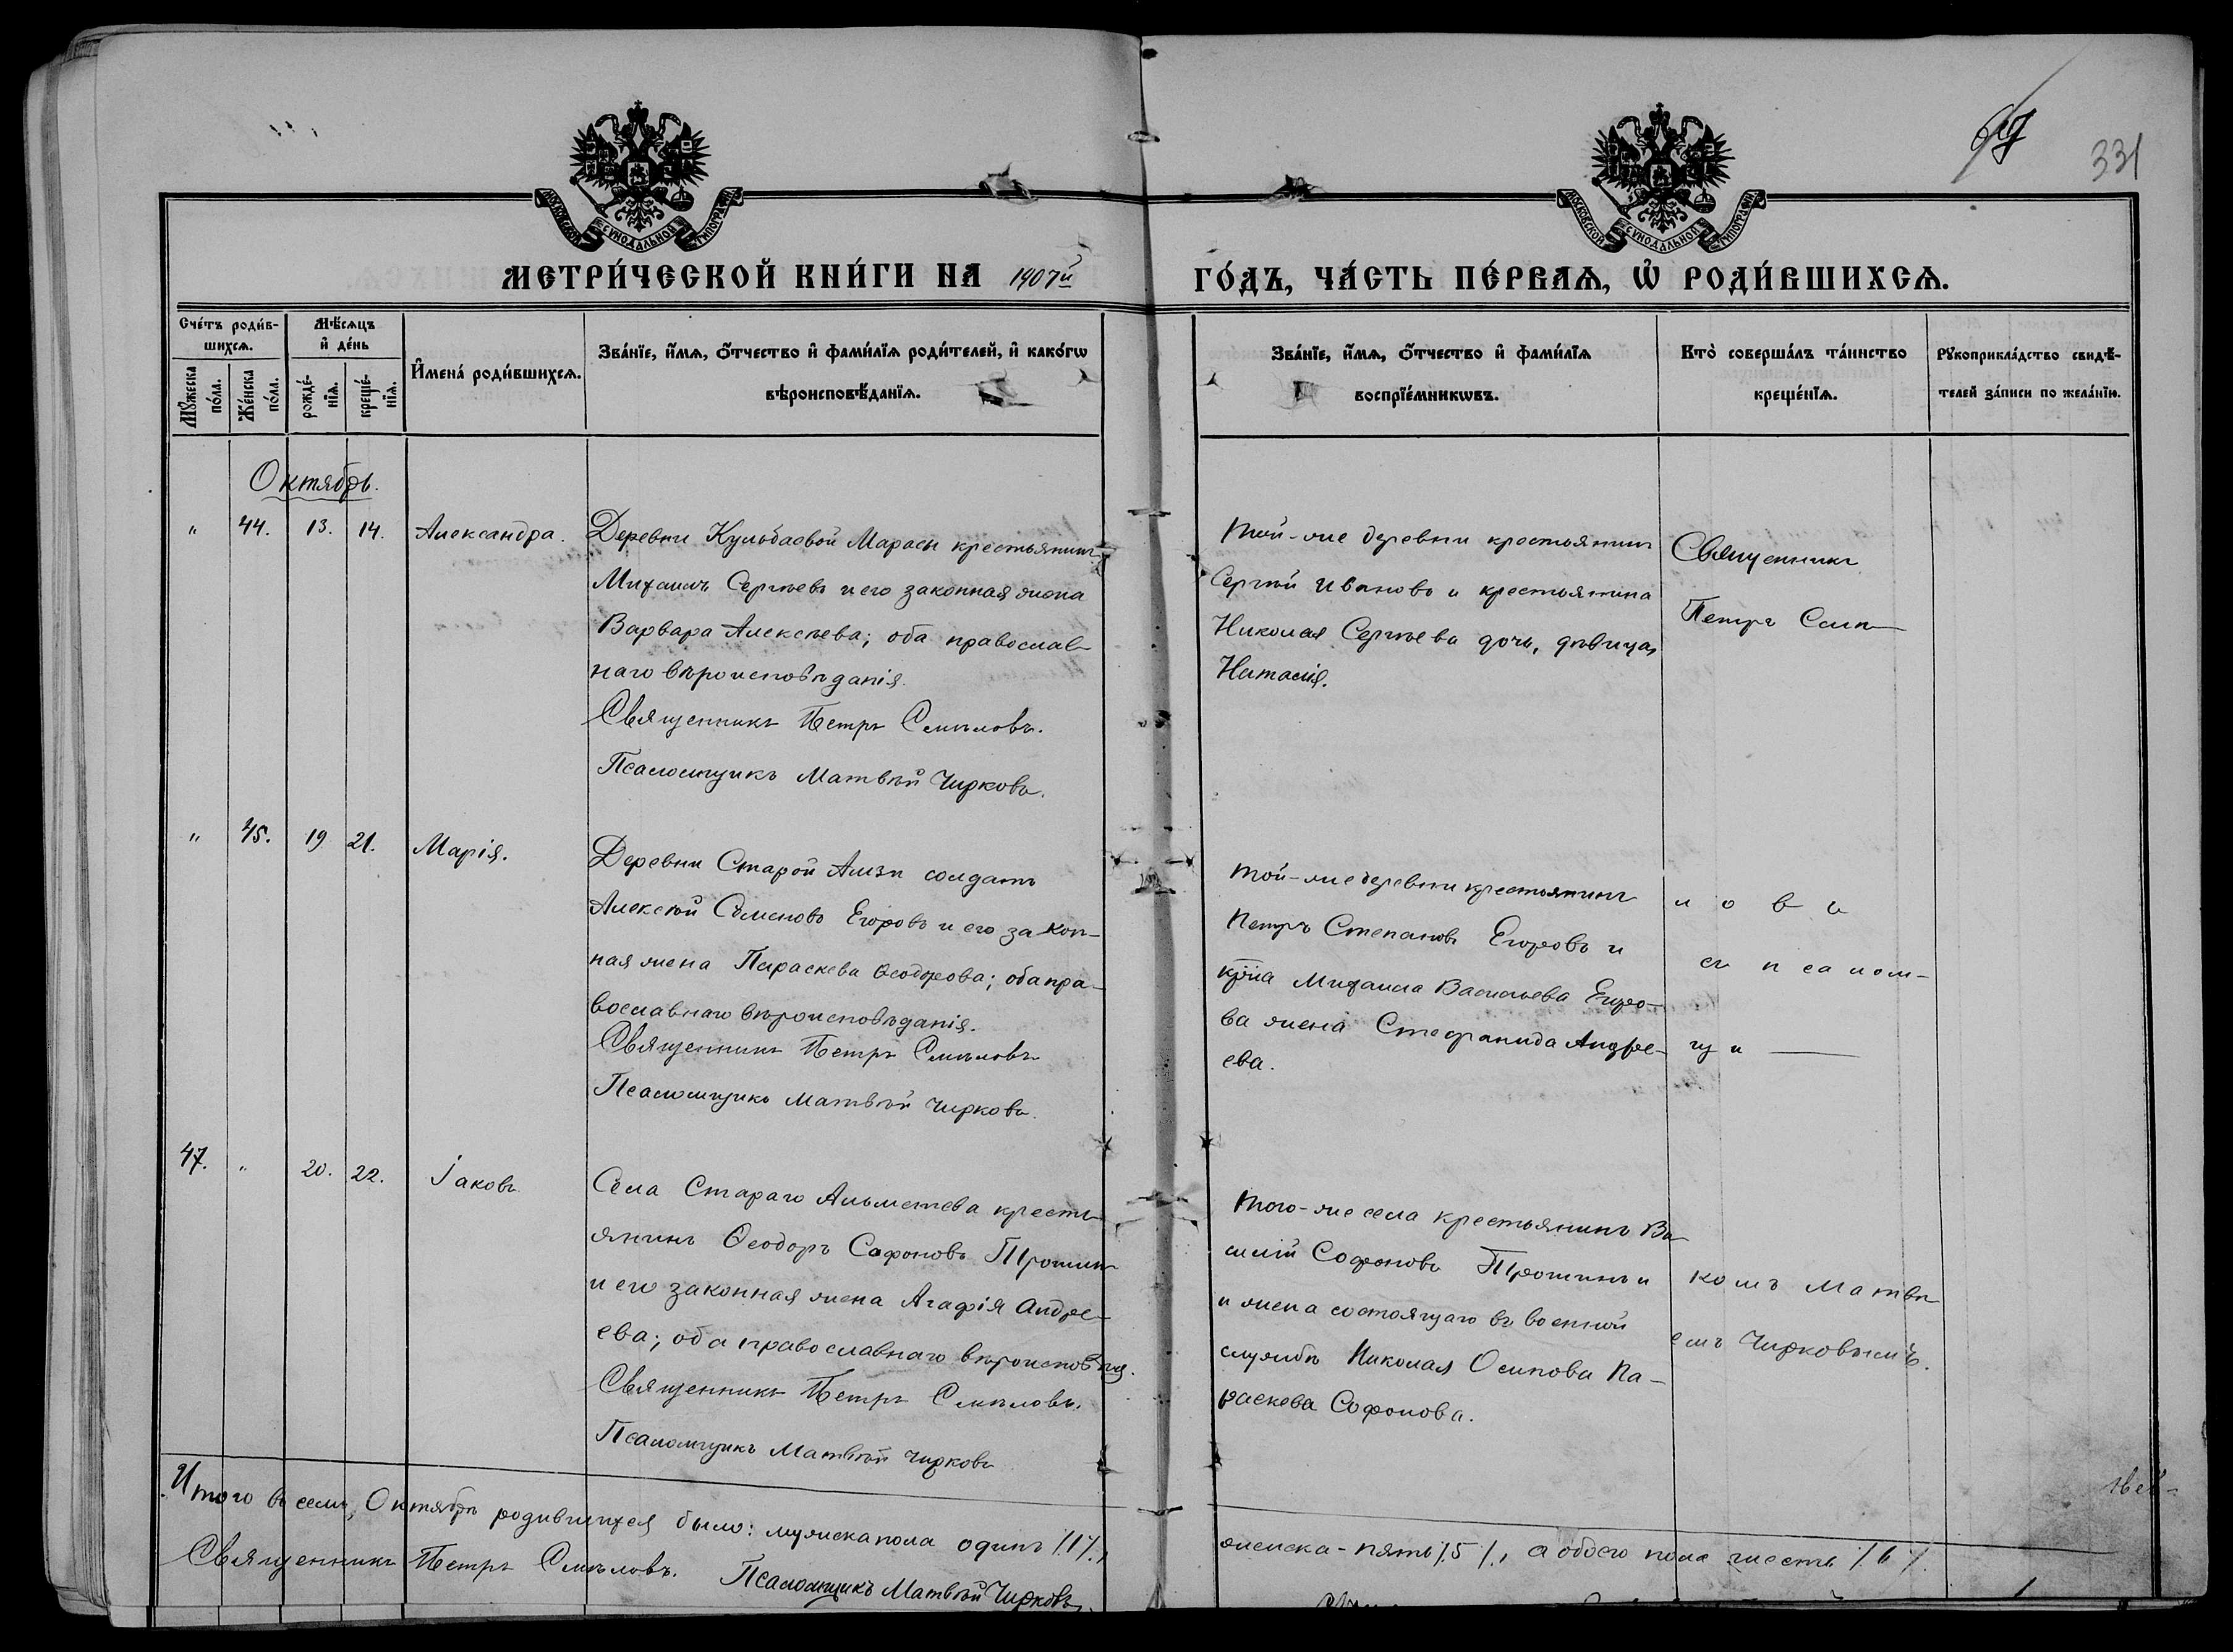 331
МОСКОВСКОЙ СѴНОДАЛЬНОЙ ТИПОГРАФІИ
МОСКОВСКОЙ СѴНОДАЛЬНОЙ ТИПОГРАФІИ
МЕТРИ́ЧЕСКОЙ КНИ́ГИ НА 1907й ГО́ДЪ, ЧА́СТЬ ПЕ́РВАѦ, Ѽ РОДИ́ВШИХСѦ.
Сче́тъ роди́в-
шихсѧ.
Мѣ́сѧцъ
и҆ де́нь
Мꙋ́жеска
по́ла.
Же́нска
по́ла.
рожде́-
нїѧ.
креще́-
нїѧ.
И҆мена́ роди́вшихсѧ.
Зва́нїе, и҆́мѧ, ѻ҆́тчество и҆ фами́лїѧ роди́телей, и҆ како́гѡ
вѣроисповѣ́данїѧ.
Зва́нїе, и҆́мѧ, ѻ҆́тчество и҆ фами́лїѧ
воспрїе́мникѡвъ.
Кто̀ соверша́лъ та́инство
креще́нїѧ.
Рꙋкоприкла́дство свидѣ́-
телей за́писи по жела́нїю.
Октябрь.
" 44. 13. 14. Александра.
Деревни Кульбаевой Марасы крестьянинъ
Михаилъ Сергѣевъ и его законная жена
Варвара Алексѣева; оба православ-
наго вѣроисповѣданія.
Священникъ Петръ Смѣловъ.
Псаломщикъ Матвѣй Чирковъ.
Той-же деревни крестьянинъ
Сергѣй Ивановъ и крестьянина
Николая Сергѣева дочь, дѣвица,
Наталія.
Священникъ
Петръ Смѣ-
" 45. 19 21. Марія.
Деревни Старой Амзи солдатъ
Алексѣй Семеновъ Егоровъ и его закон-
ная жена Параскева Ѳеодорова; оба пра-
вославнаго вѣроисповѣданія.
Священникъ Петръ Смѣловъ
Псаломщикъ Матвѣй Чирковъ.
Той-же деревни крестьянинъ
Петръ Степановъ Егоровъ и
кр̃на Михаила Васильева Егоро-
ва жена Стефанида Андре-
ева.
ловъ
съ псалом-
щи-
47. " 20. 22. Іаковъ.
Села Стараго Альметева кресть-
янинъ Ѳеодоръ Софоновъ Трошинъ
и его законная жена Агафія Андре-
ева; оба православнаго вѣроисповѣнія.
Священникъ Петръ Смѣловъ.
Псаломщикъ Матвѣй Чирковъ
Того-же села крестьянинъ Ва-
силій Софоновъ Трошинъ и
и жена состоящаго въ военной
службѣ Николая Осипова Па-
раскева Софонова.
комъ Матвѣ-
емъ Чирковымъ.
Итого въ семъ Октябрѣ родившихся было: мужеска пола одинъ /.1./, женска - пять /.5/., а обоего пола шесть /.6./.
Священникъ Петръ Смѣловъ. Псаломщикъ Матвѣй Чирковъ.